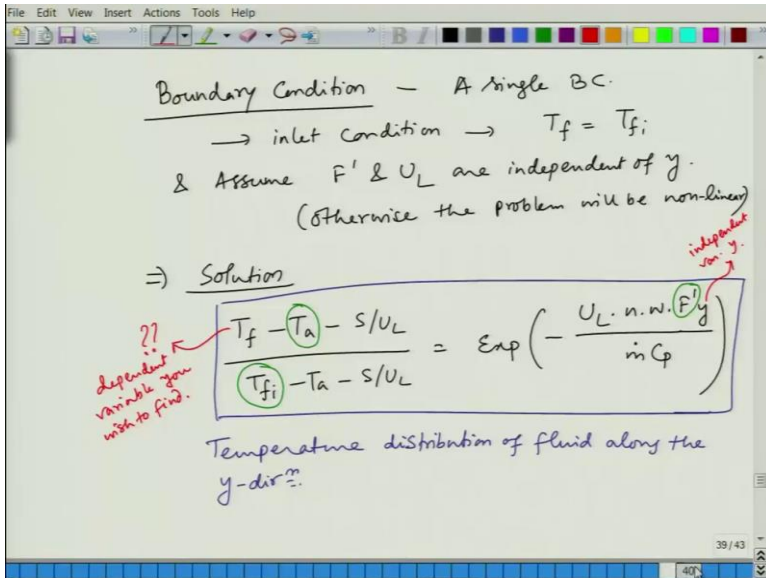 File Edit View Insert Actions Tools Help
Boundary Condition — A single BC.
→ inlet condition → T_f = T_fi
& Assume F' & U_L are independent of y.
(otherwise the problem will be non-linear)
independent
var. y.
⇒ Solution
(T_f - T_a - S/U_L) / (T_fi - T_a - S/U_L) = Exp(- (U_L . n . w . F' y) / (ṁ Cp))
??
dependent
variable you
wish to find.
Temperature distribution of fluid along the
y-dirⁿ.
39/43
40